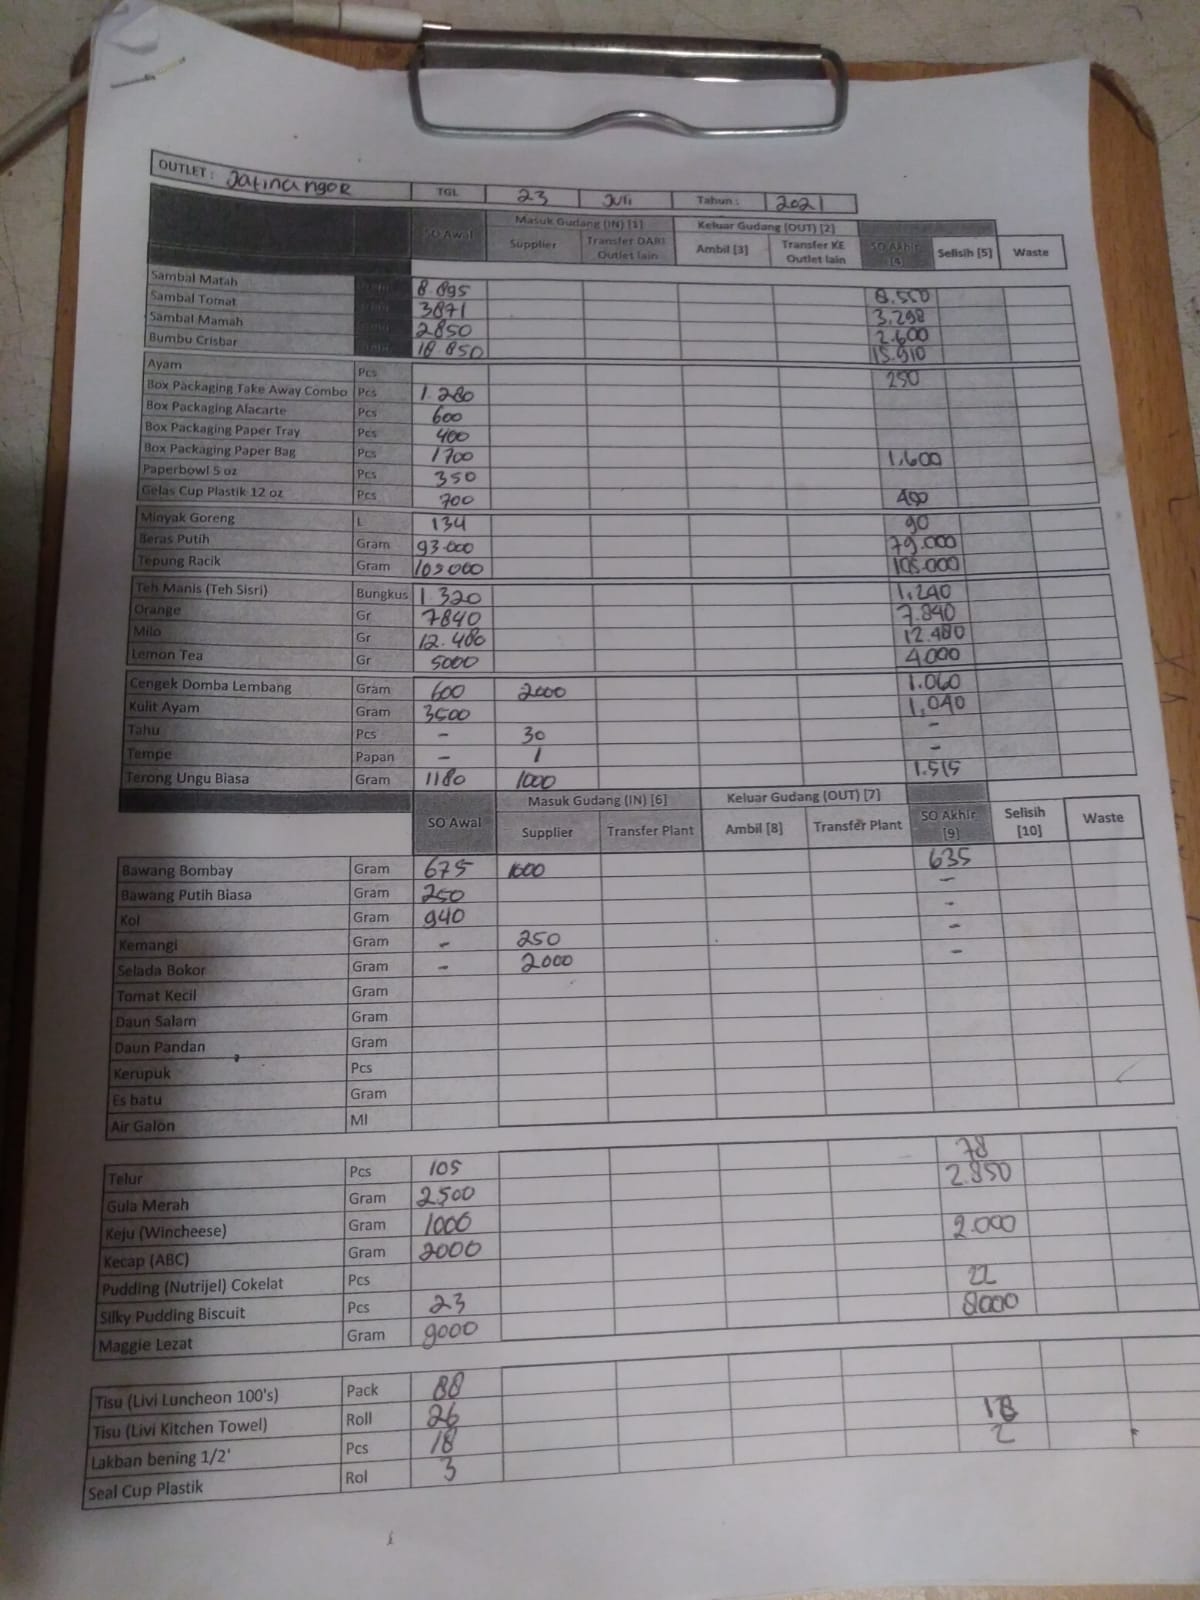 OUTLET : Jatinangor TGL 23 Juli Tahun : 2021
SO Awal Masuk Gudang (IN) [1] Keluar Gudang [OUT] [2] SO Akhir [4] Selisih [5] Waste
Supplier Transfer DARI Outlet lain Ambil [3] Transfer KE Outlet lain
Sambal Matah 8.895 8.550
Sambal Tomat 3871 3.298
Sambal Mamah 2850 2.600
Bumbu Crisbar 18.850 15.910
Ayam Pcs 250
Box Packaging Take Away Combo Pcs 1.280
Box Packaging Alacarte Pcs 600
Box Packaging Paper Tray Pcs 400
Box Packaging Paper Bag Pcs 1700 1.600
Paperbowl 5 oz Pcs 350
Gelas Cup Plastik 12 oz Pcs 700 400
Minyak Goreng L 134 90
Beras Putih Gram 93.000 79.000
Tepung Racik Gram 105000 105.000
Teh Manis (Teh Sisri) Bungkus 1.320 1.240
Orange Gr 7840 7.840
Milo Gr 12.480 12.480
Lemon Tea Gr 5000 4.000
Cengek Domba Lembang Gram 600 2000 1.060
Kulit Ayam Gram 3500 1.040
Tahu Pcs - 30 -
Tempe Papan - 1 -
Terong Ungu Biasa Gram 1180 1000 1.515
SO Awal Masuk Gudang (IN) [6] Keluar Gudang (OUT) [7] SO Akhir [9] Selisih [10] Waste
Supplier Transfer Plant Ambil [8] Transfer Plant
Bawang Bombay Gram 675 1000 635
Bawang Putih Biasa Gram 250 -
Kol Gram 940 -
Kemangi Gram - 250 -
Selada Bokor Gram - 2000 -
Tomat Kecil Gram
Daun Salam Gram
Daun Pandan Gram
Kerupuk Pcs
Es batu Gram
Air Galon Ml
Telur Pcs 105 78
Gula Merah Gram 2500 2.850
Keju (Wincheese) Gram 1000
Kecap (ABC) Gram 2000 2.000
Pudding (Nutrijel) Cokelat Pcs
Silky Pudding Biscuit Pcs 23 22
Maggie Lezat Gram 9000 8000
Tisu (Livi Luncheon 100's) Pack 88
Tisu (Livi Kitchen Towel) Roll 26
Lakban bening 1/2' Pcs 18 18
Seal Cup Plastik Rol 3 2